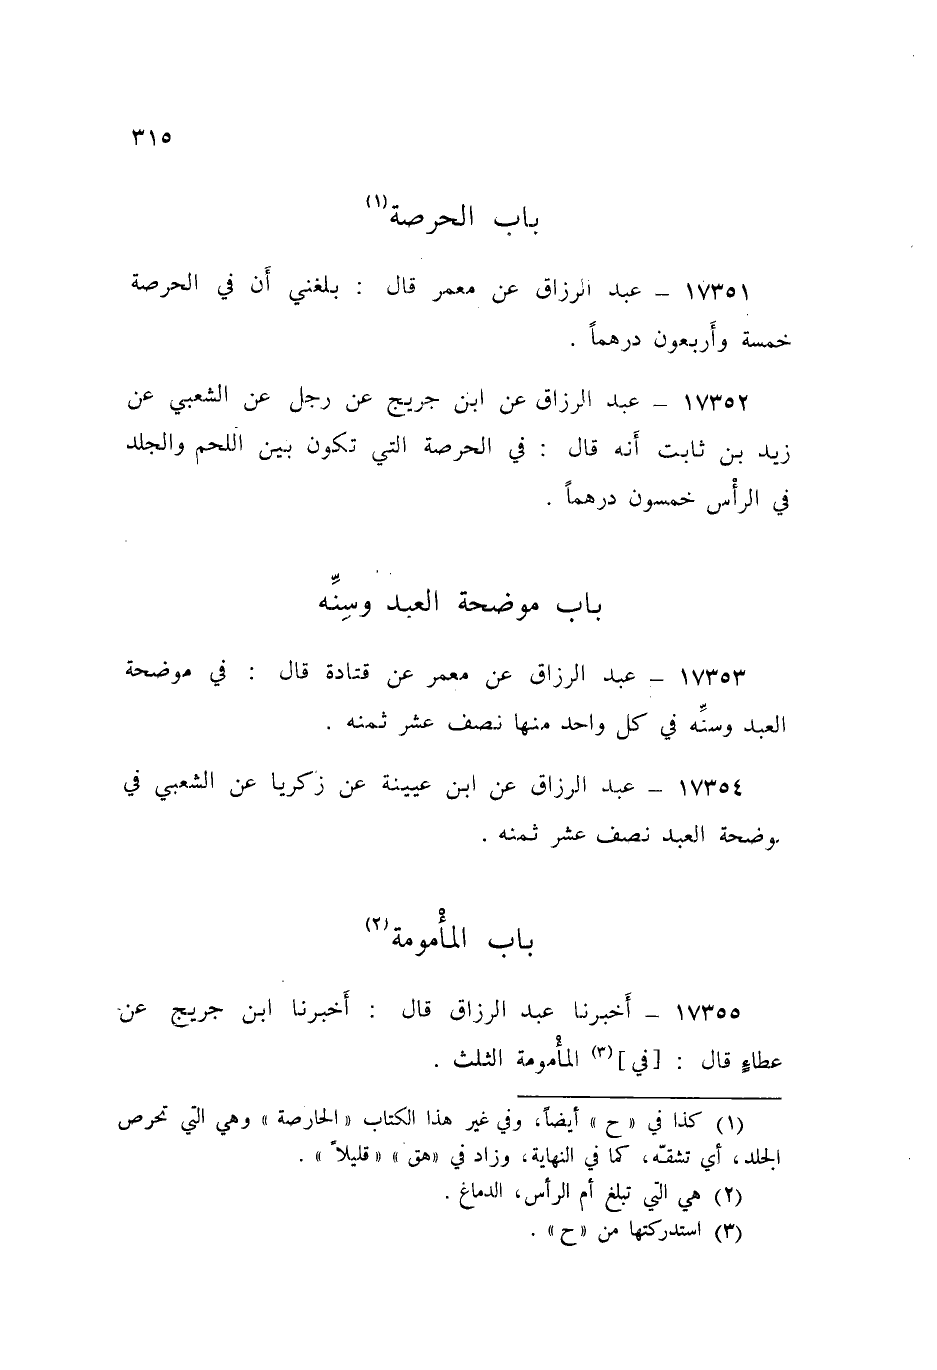 ٣١٥
باب الحرصة(١)
١٧٣٥١ – عبد الرزاق عن معمر قال : بلغني أَن في الحرصة
خمسة وأَربعون درهماً .
١٧٣٥٢ – عبد الرزاق عن ابن جريج عن رجل عن الشعبي عن
زيد بن ثابت أَنه قال : في الحرصة التي تكون بين اللحم والجلد
في الرأْس خمسون درهماً .
باب موضحة العبد وسِنِّه
١٧٣٥٣ – عبد الرزاق عن معمر عن قتادة قال : في موضحة
العبد وسنِّه في كل واحد منها نصف عشر ثمنه .
١٧٣٥٤ – عبد الرزاق عن ابن عيينة عن زكريا عن الشعبي في
موضحة العبد نصف عشر ثمنه .
باب المأْمومة(٢)
١٧٣٥٥ – أَخبرنا عبد الرزاق قال : أَخبرنا ابن جريج عن
عطاءٍ قال : [في](٣) المأْمومة الثلث .
(١) كذا في «ح» أيضاً، وفي غير هذا الكتاب «الحارصة» وهي التي تحرص
الجلد، أي تشقّه، كما في النهاية، وزاد في «هق» «قليلاً» .
(٢) هي التّي تبلغ أم الرأس، الدماغ .
(٣) استدركتها من «ح» .